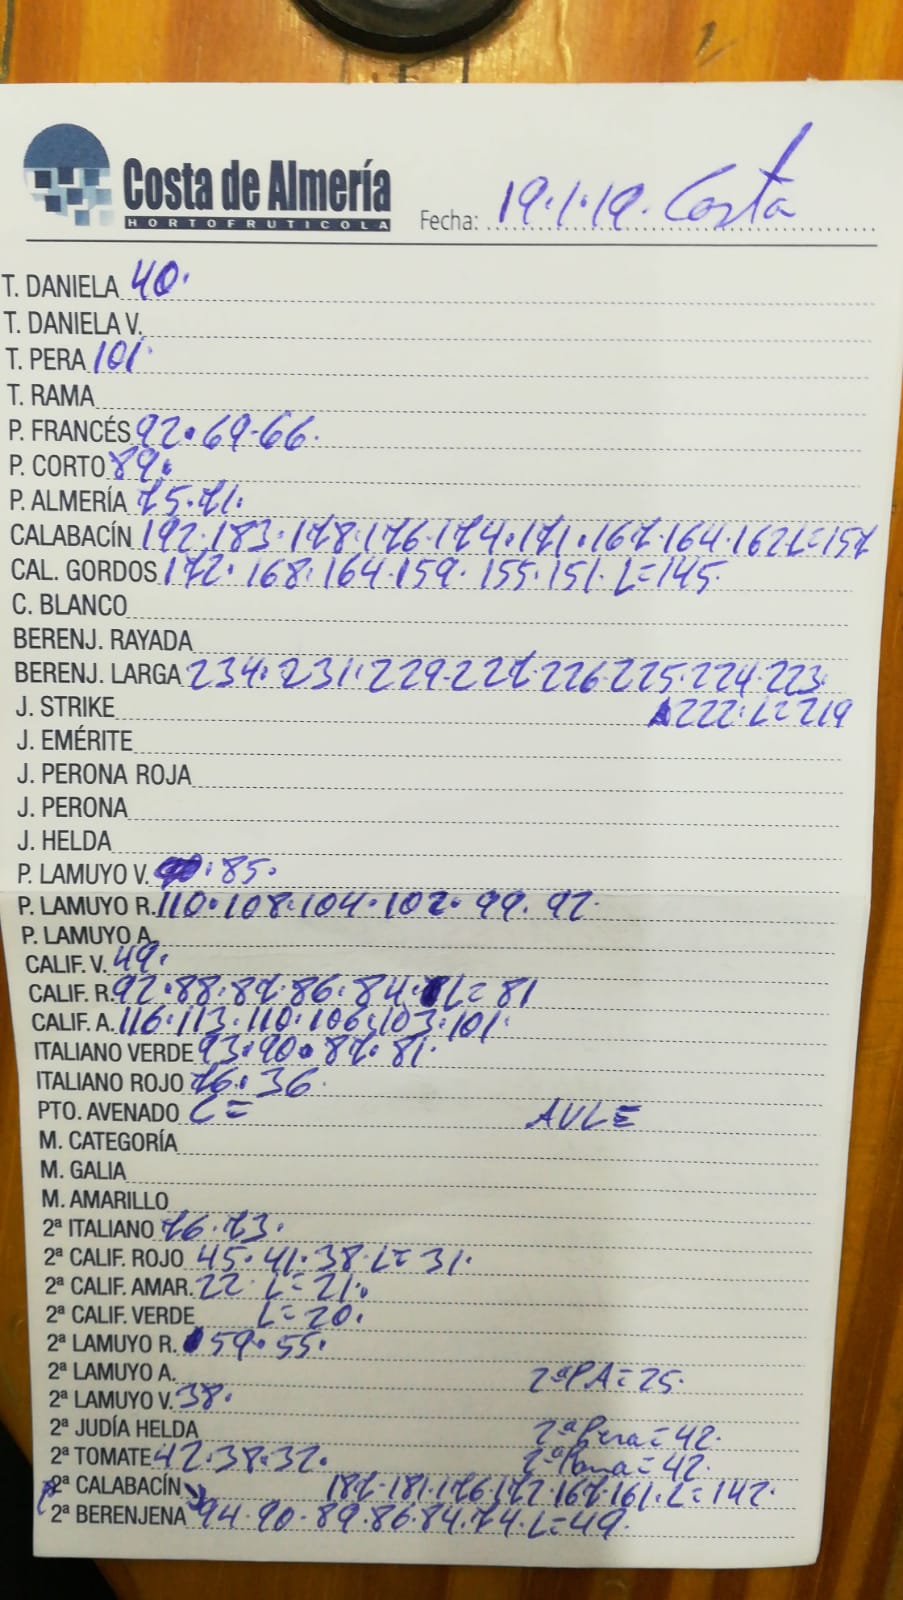 Costa de Almería
HORTOFRUTICOLA
Fecha: 19.1.19. Costa
T. DANIELA 40.
T. DANIELA V.
T. PERA 101.
T. RAMA
P. FRANCÉS 92.69.66.
P. CORTO 89.
P. ALMERÍA 75.71.
CALABACÍN 192.183.178.176.174.171.167.164.162 L=157
CAL. GORDOS 172.168.164.159.155.151. L=145.
C. BLANCO
BERENJ. RAYADA
BERENJ. LARGA 234.231.229.227.226.225.224.223.
J. STRIKE 222. L=219
J. EMÉRITE
J. PERONA ROJA
J. PERONA
J. HELDA
P. LAMUYO V. .85.
P. LAMUYO R. 110.108.104.102.99.92.
P. LAMUYO A.
CALIF. V. 49.
CALIF. R. 92.88.87.86.84. L=81
CALIF. A. 116.113.110.106.103.101.
ITALIANO VERDE 93.90.87.81.
ITALIANO ROJO 76.36.
PTO. AVENADO L= AVLE
M. CATEGORÍA
M. GALIA
M. AMARILLO
2ª ITALIANO 76.73.
2ª CALIF. ROJO 45.41.38.L=31.
2ª CALIF. AMAR. 22. L=21.
2ª CALIF. VERDE L=20.
2ª LAMUYO R. 59.55.
2ª LAMUYO A. 2ªPA=25.
2ª LAMUYO V. 38.
2ª JUDÍA HELDA 2ªPera=42.
2ª TOMATE 42.38.32. =42.
2ª CALABACÍN 187.181.176.172.167.161.L=142.
2ª BERENJENA 94.90.89.86.84.74.L=49.